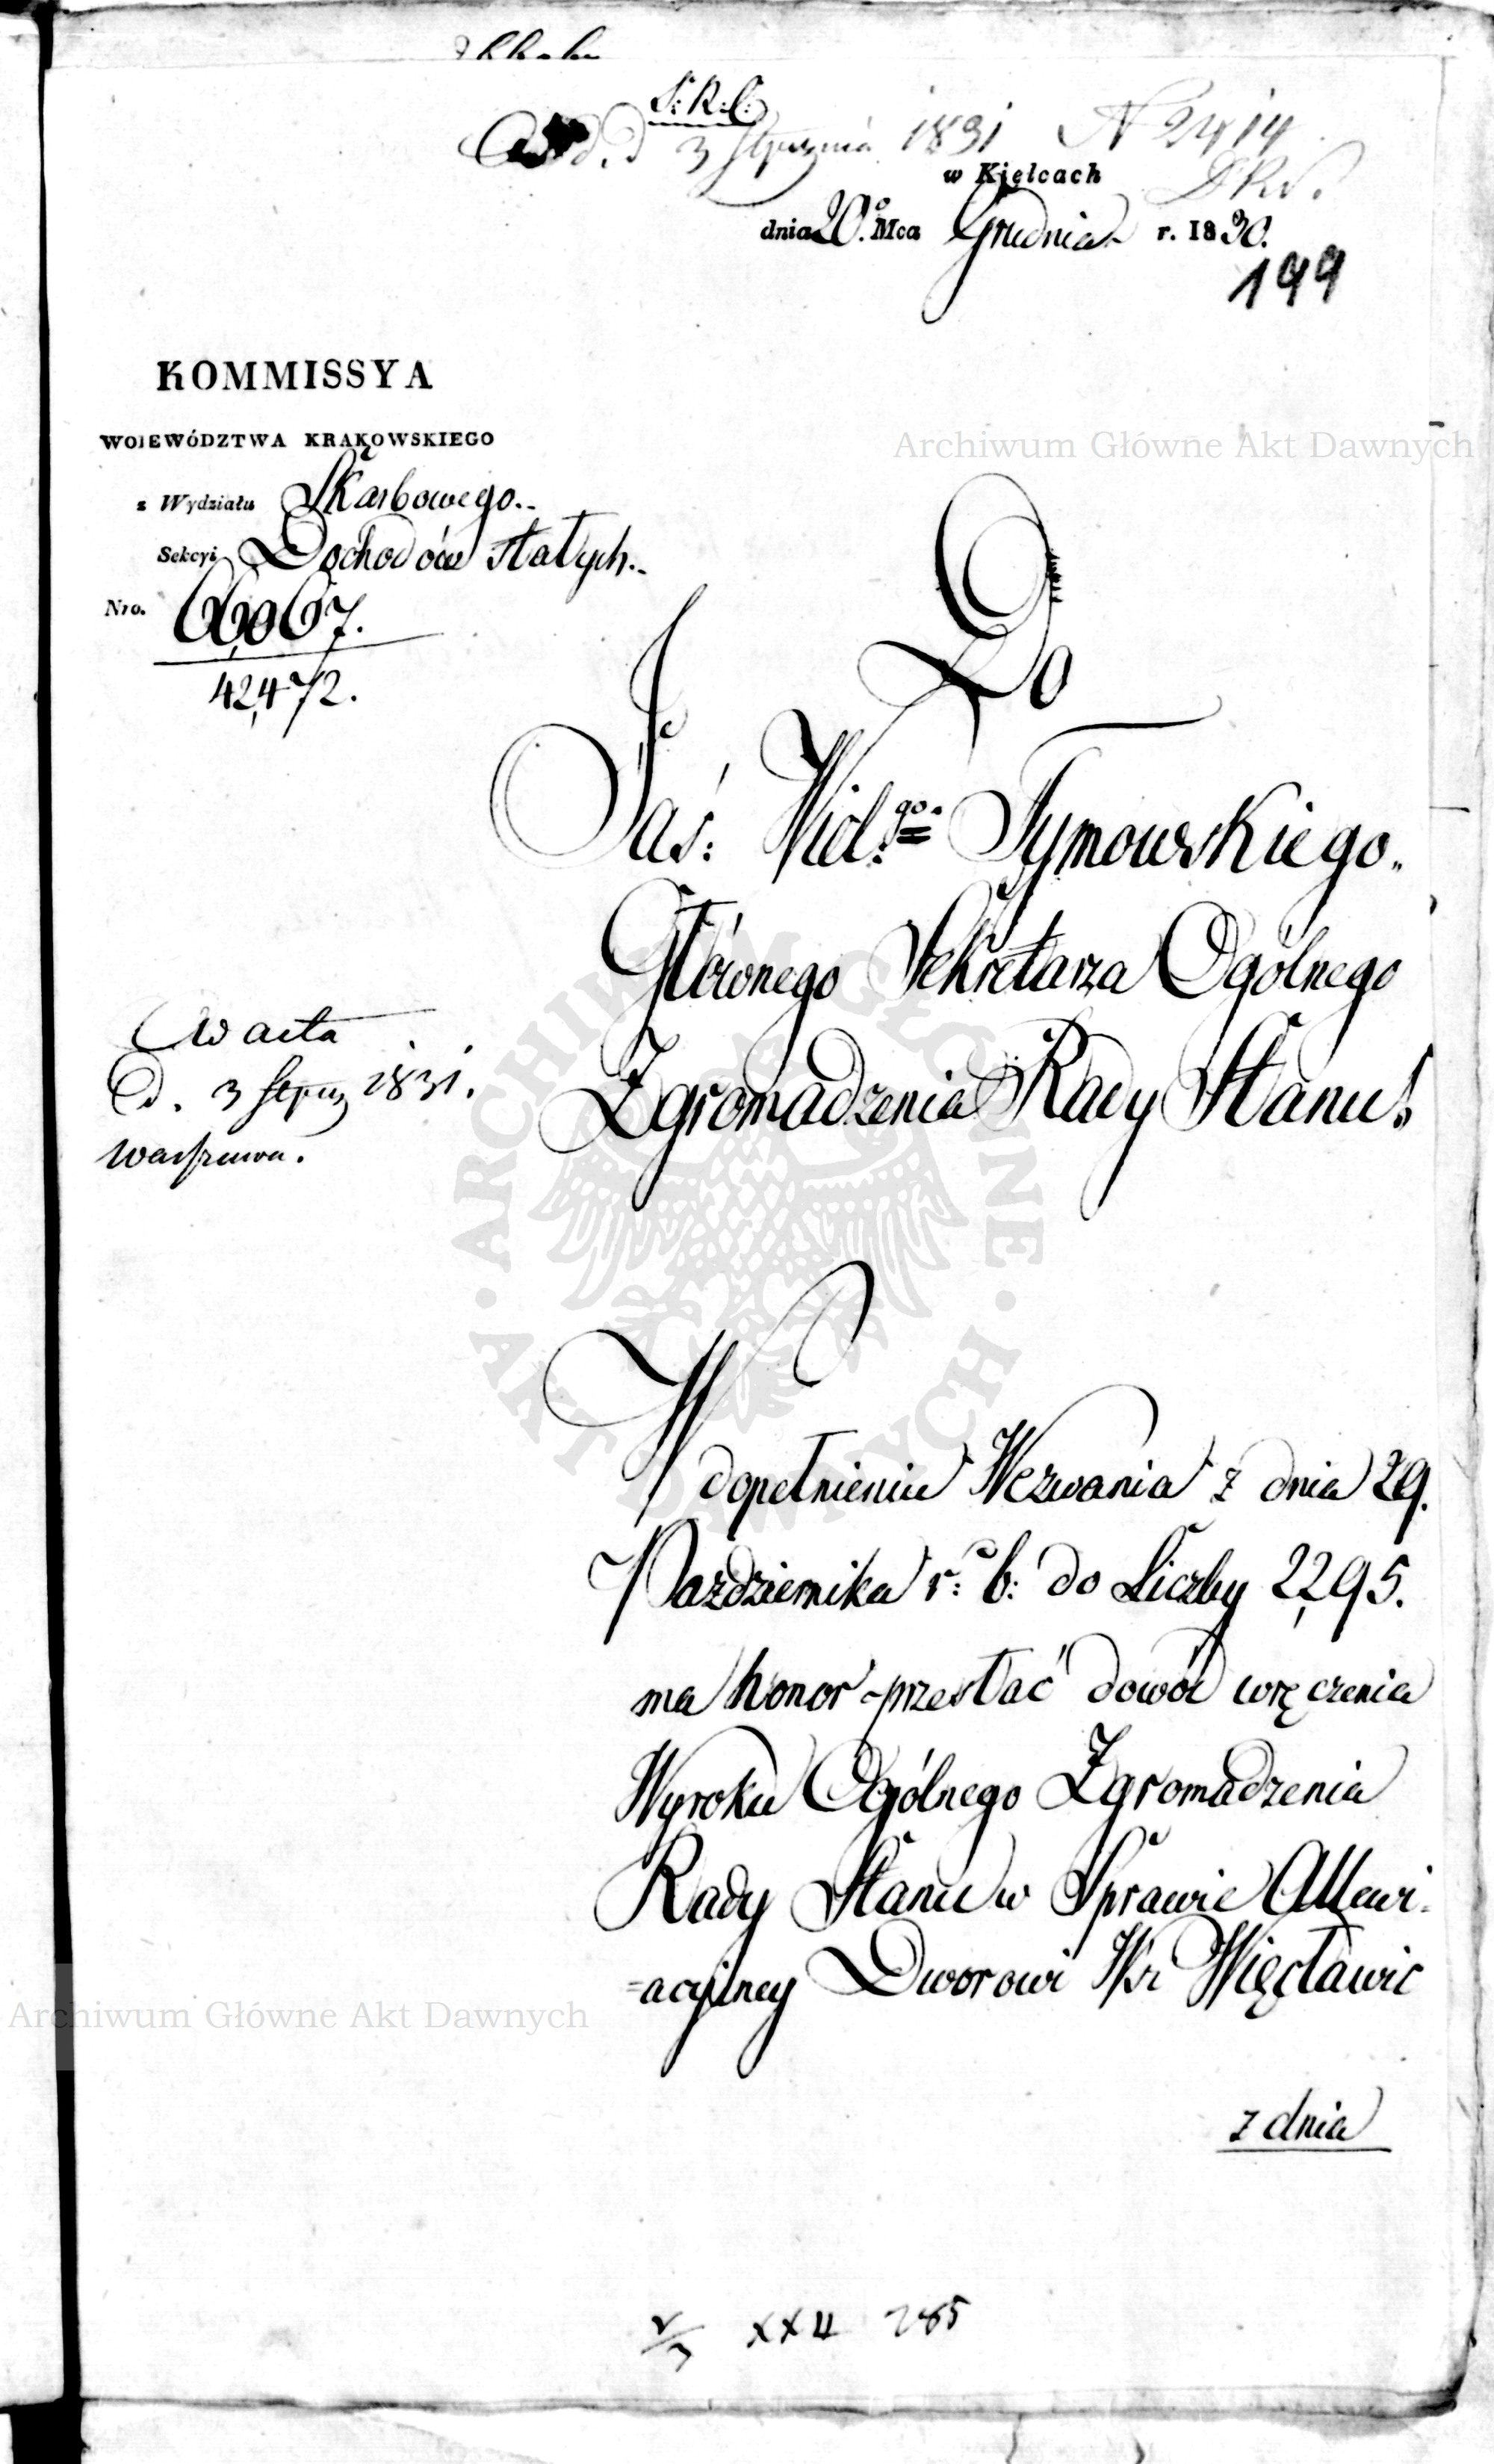 S: R: S:
d. 3 Stycznia 1831 N 2414
w Kielcach
dnia 20.° Mca Grudnia r. 1830.
199
KOMMISSYA
WOIEWÓDZTWA KRAKOWSKIEGO
z Wydziału Skarbowego.
Sekcyi Dochodów Stałych.
Nro. 66,067.
42,472.
Archiwum Główne Akt Dawnych
Do
Jaś: Wiel:go Tymowskiego
Głównego Sekretarza Ogólnego
Zgromadzenia Rady Stanu
w acta
d. 3 Stycz 1831.
Warszawa.
W dopełnieniu Wezwania z dnia 29.
Pazdziernika r: b: do Liczby 2,295.
ma honor przesłać dowód wręczenia
Wyroku Ogólnego Zgromadzenia
Rady Stanu w Sprawie Allewi-
=acyjney Dworowi Wsi Więcławic
Archiwum Główne Akt Dawnych
z dnia
2/3 XXII 285
ARCHIWUM GŁÓWNE
AKT DAWNYCH